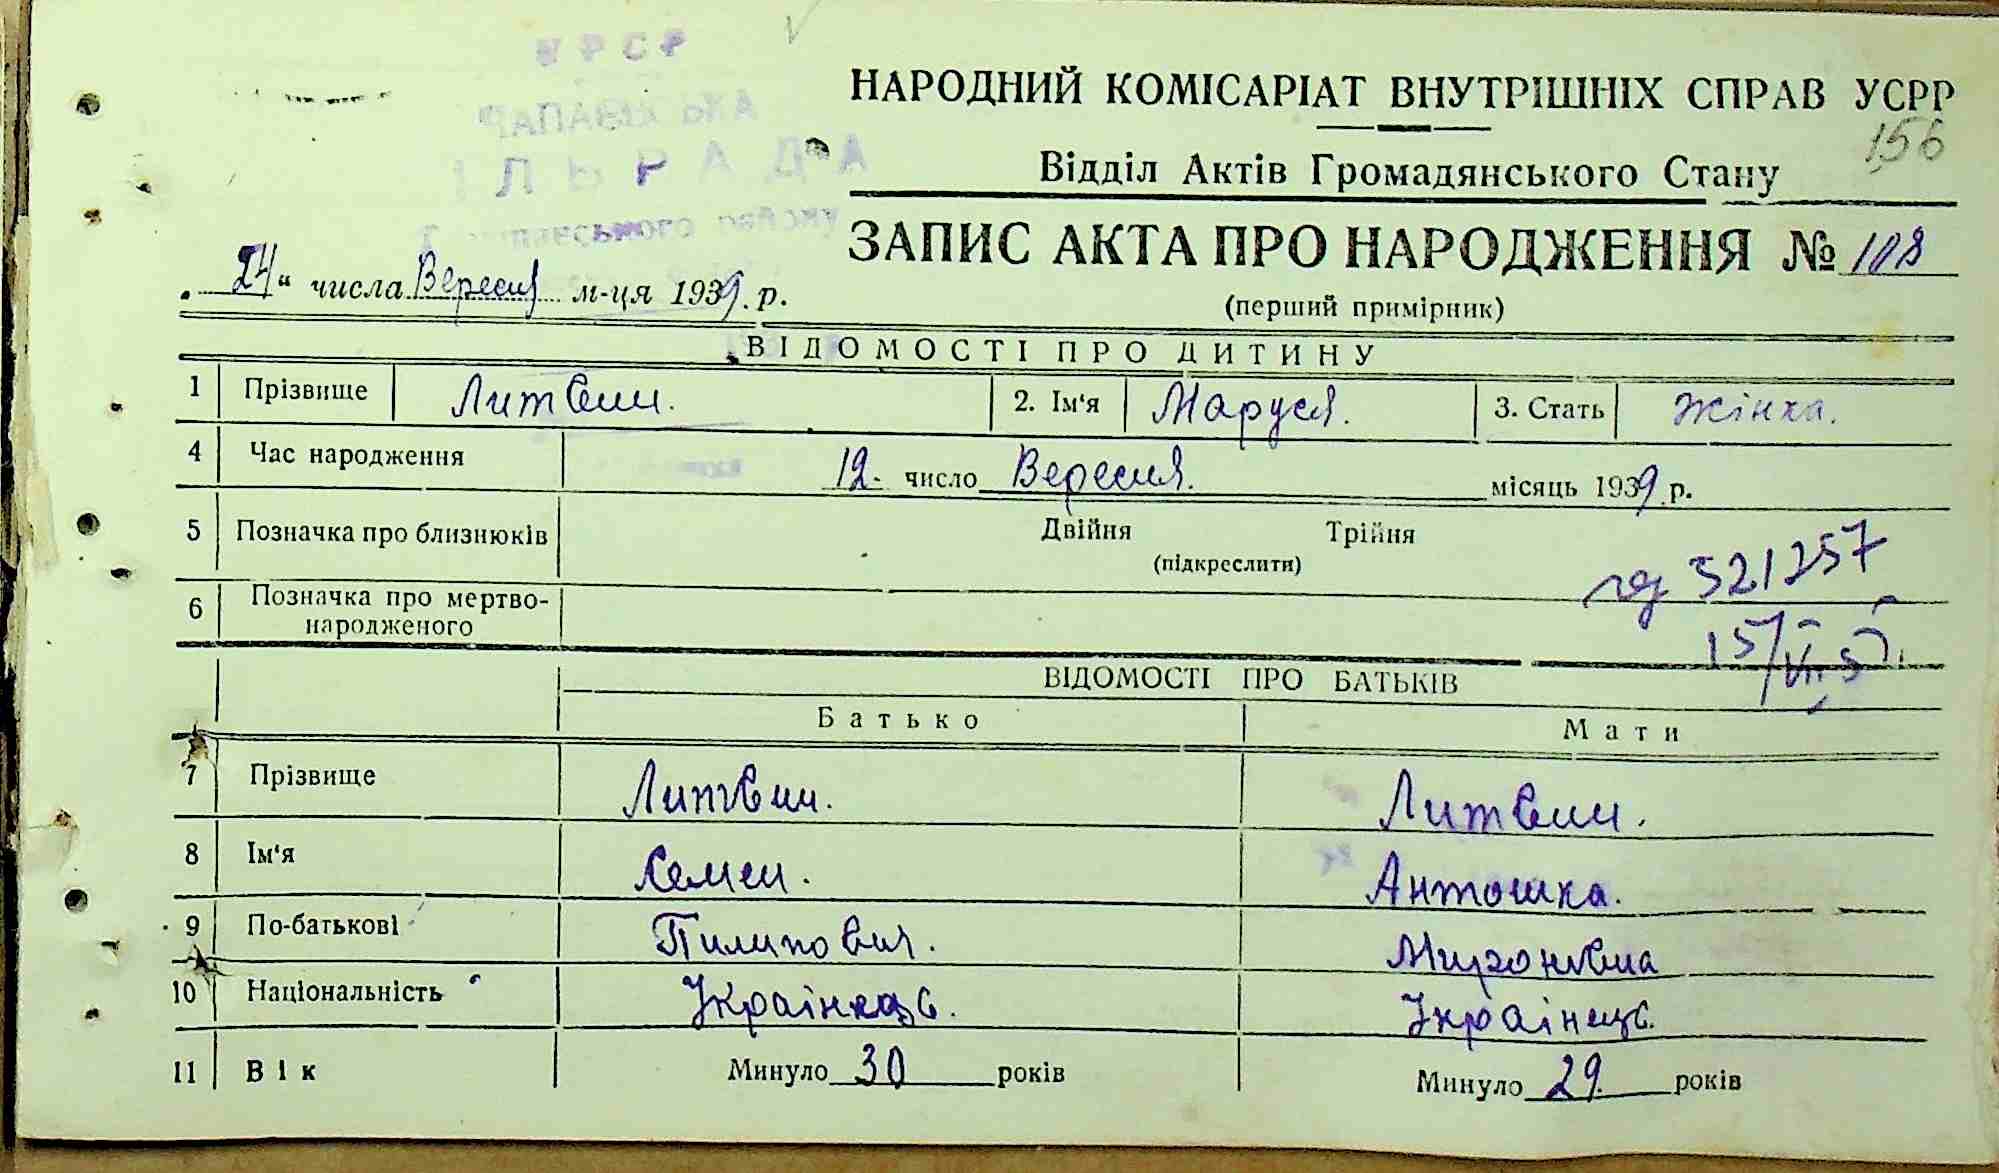 УРСР
ЧАПАЄВСЬКА
ІЛЬРАДА
району
НАРОДНИЙ КОМІСАРІАТ ВНУТРІШНІХ СПРАВ УСРР
156
Відділ Актів Громадянського Стану
ЗАПИС АКТА ПРО НАРОДЖЕННЯ № 108
„24“ числа Вересня м-ця 1939 р.
(перший примірник)
ВІДОМОСТІ ПРО ДИТИНУ
1 Прізвище Литвин. 2. Ім‘я Маруся. 3. Стать Жінка.
4 Час народження 12. число Вересня. місяць 1939 р.
5 Позначка про близнюків Двійня Трійня
(підкреслити)
521257
6 Позначка про мертво-
народженого
15/VII
ВІДОМОСТІ ПРО БАТЬКІВ
Батько Мати
7 Прізвище Литвин. Литвин.
8 Ім‘я Семен. Антошка.
9 По-батькові Пилипович. Миронівна
10 Національність Українець. Українець.
11 Вік Минуло 30 років Минуло 29. років